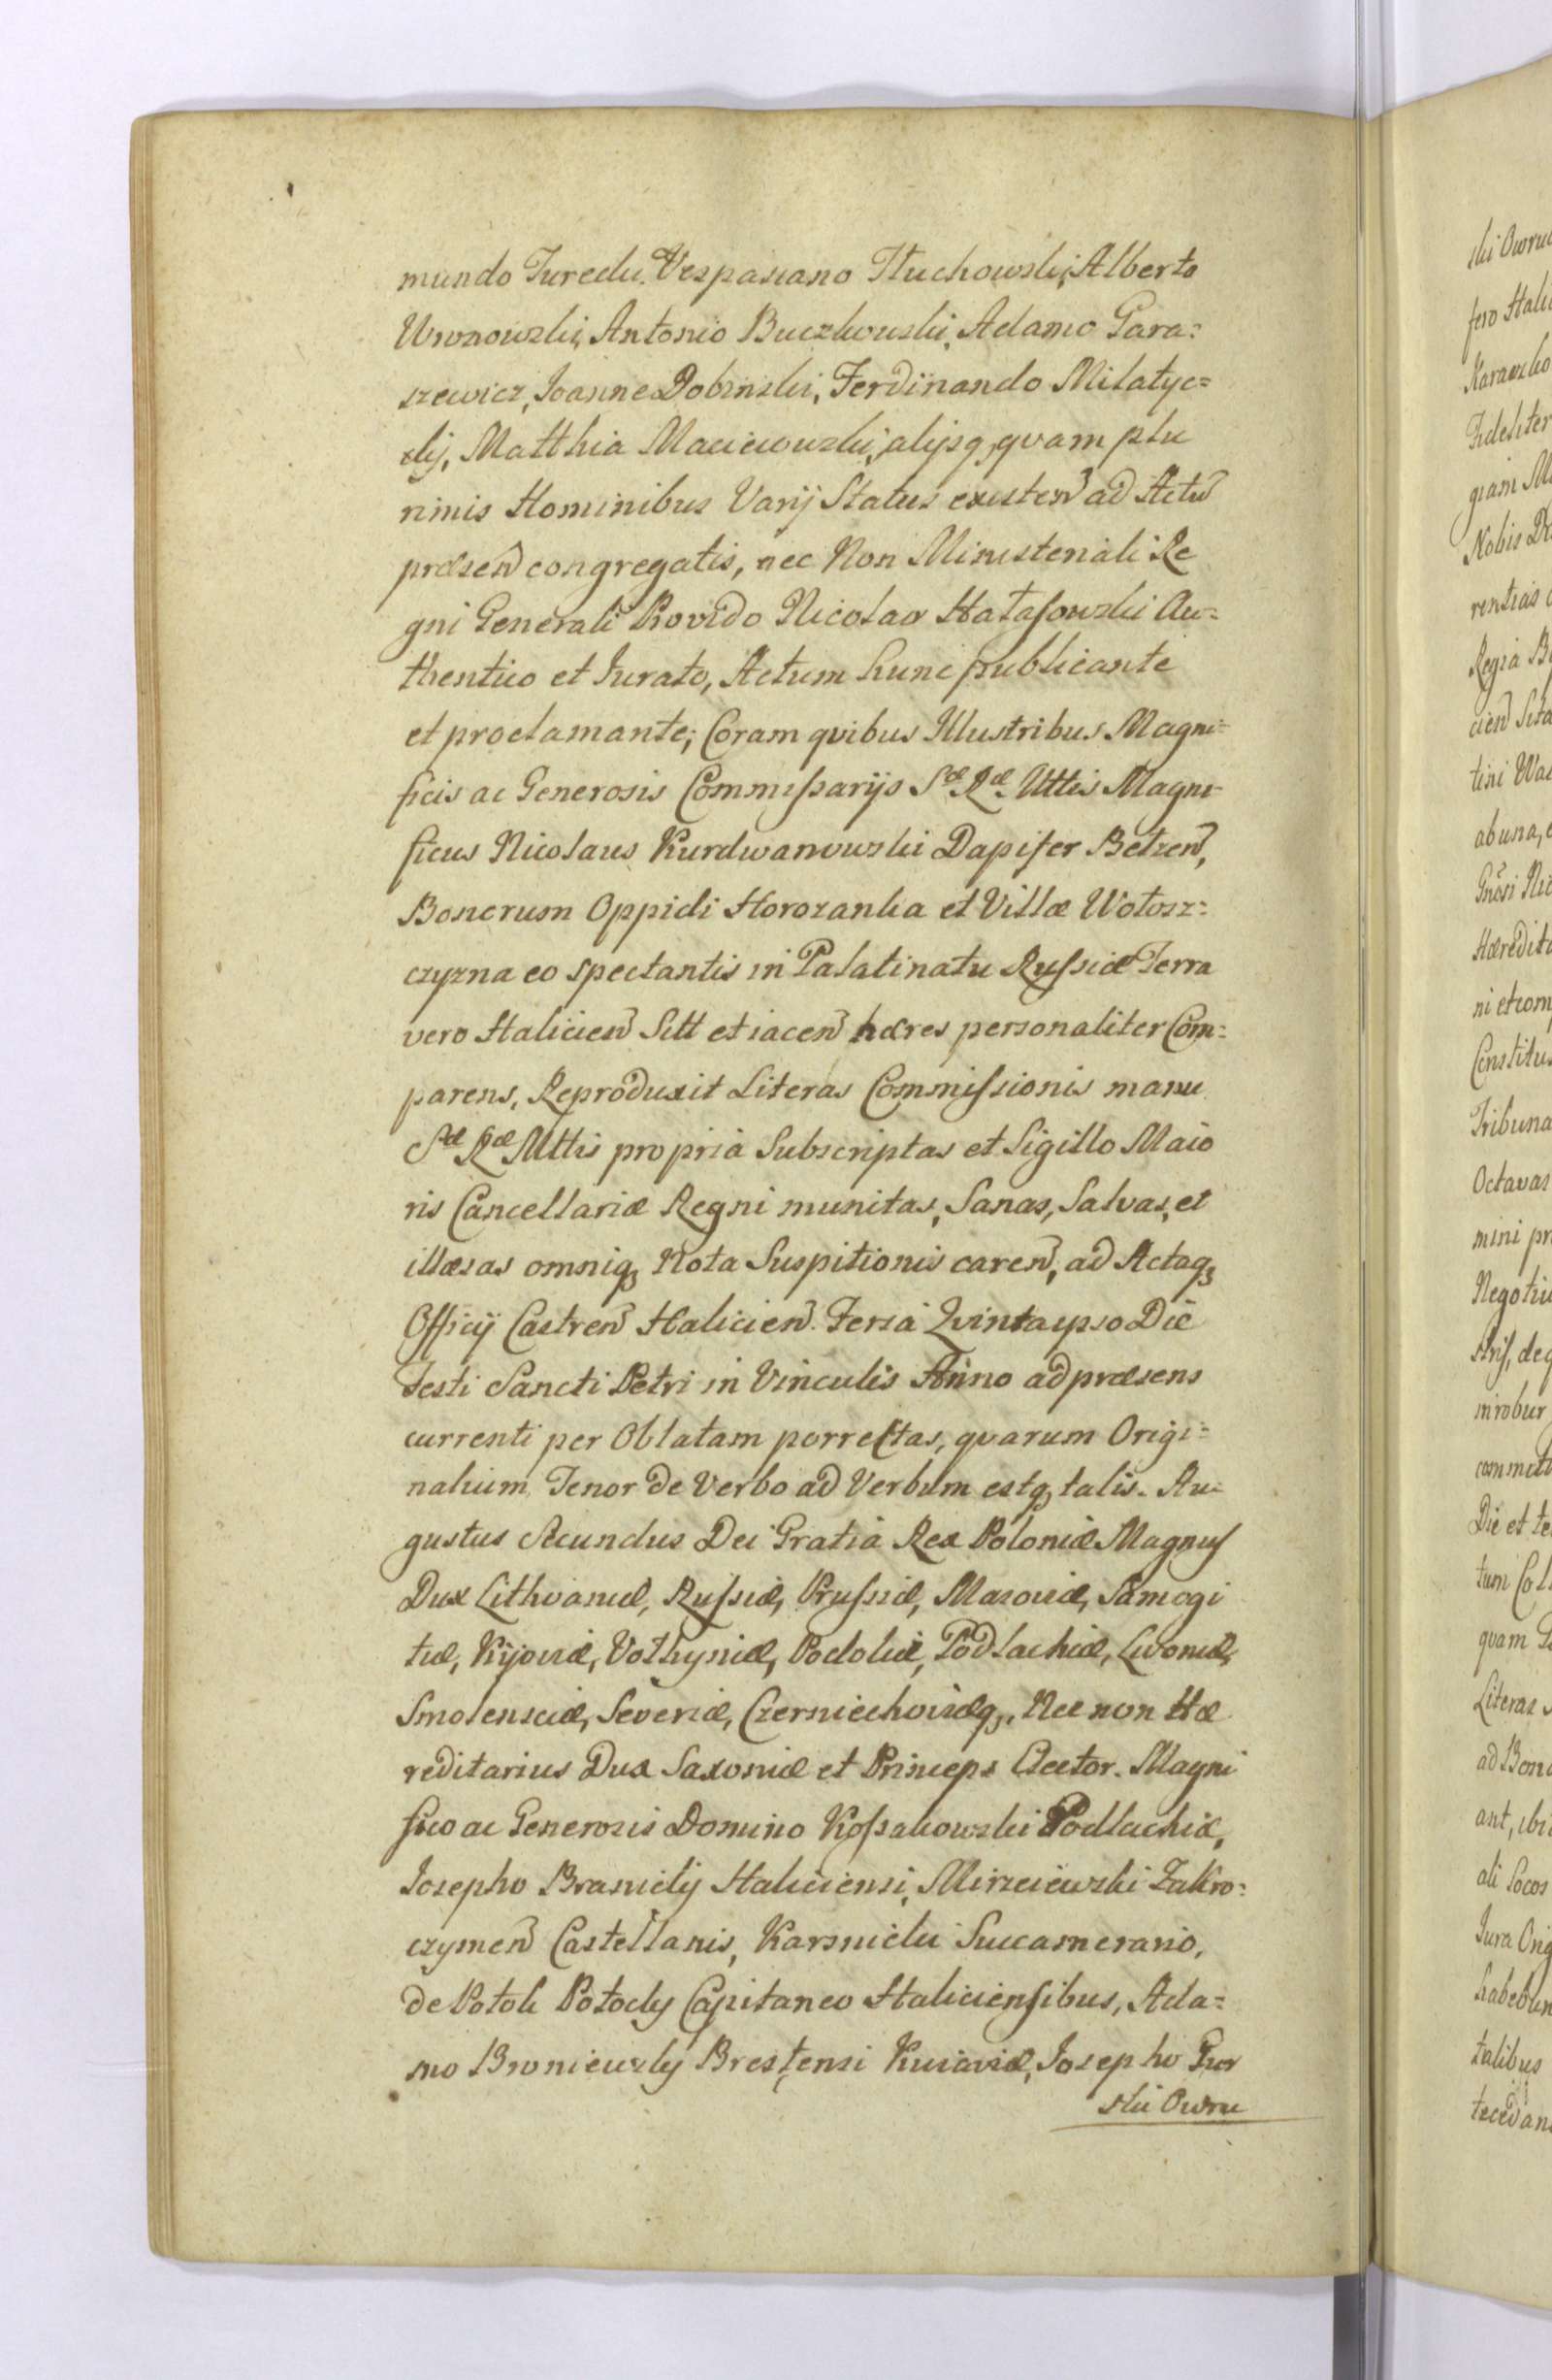 mundo Turecki. Vespasiano Tłuchowski, Alberto
Wronowski, Antonio Buczkowski, Adamo Gara=
szewicz, Joanne Dobinski, Ferdinando Milatyc=
kij, Matthia Maciewowski, alijsq, qvam plu
rimis Hominibus Varij Status existen ad Actu
præsen congregatis, nec Non Ministeriali Re
gni Generali Provido Nicolao Hatasowski Au=
thentico et Jurato, Actum hunc publicante
et proclamante; Coram qvibus Illustribus Magni=
ficis ac Generosis Commissarijs Sæ Ræ Mttis Magni=
ficus Nicolaus Kurdwanowski Dapifer Belzen,
Bonorum Oppidi Horozanka et Villæ Wołosz=
czyzna eo spectantis in Palatinatu Russiæ Terra
vero Halicien Sitt et iacen hæres personaliter Com=
parens, Reproduxit Literas Commissionis manu
Sæ Ræ Mttis propria Subscriptas et Sigillo Maio
ris Cancellariæ Regni munitas, Sanas, Salvas, et
illæsas omniq, Nota Suspitionis caren, ad Actaq,
Officij Castren Halicien. Feria Qvinta ipso Die
Festi Sancti Petri in Vinculis Anno ad præsens
currenti per Oblatam porrectas, qvarum Origi=
nalium Tenor de Verbo ad Verbum estq, talis. Au=
gustus Secundus Dei Gratia Rex Poloniæ Magnus
Dux Lithvaniæ, Russiæ, Prussiæ, Masoviæ, Samogi
tiæ, Kijoviæ, Volhyniæ, Podoliæ, Podlachiæ, Livoniæ,
Smolensciæ, Severiæ, Czerniechoviæq,, Nec non Hæ
reditarius Dux Saxoniæ et Princeps Elector. Magni
fico ac Generosis Domino Kossakowski Podlachiæ,
Josepho Branicky Haliciensi, Mirzeiewski Zakro=
czymen Castellanis, Karsnicki Succamerario,
de Potok Potocky Capitaneo Haliciensibus, Ada=
mo Broniewsky Brestensi Kuiaviæ, Josepho Gur
ski Owru